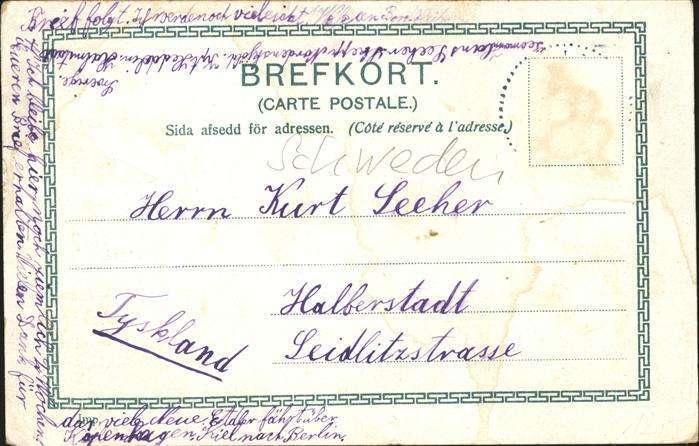 Brief folgt. Ihr werdet noch
Seemann
Seeher
Halmstad
Sverige.
BREFKORT.
(CARTE POSTALE.)
Sida afsedd för adressen. (Côté réservé à l'adresse.)
Schweden
Herrn Kurt Seeher
Halberstadt
Seidlitzstrasse
Tyskland
Ich bleibe hier noch
Eueren Brief erhalten. Vielen Dank für
das viele Neue. Etdar fährt über
Kopenhagen, Kiel nach Berlin.